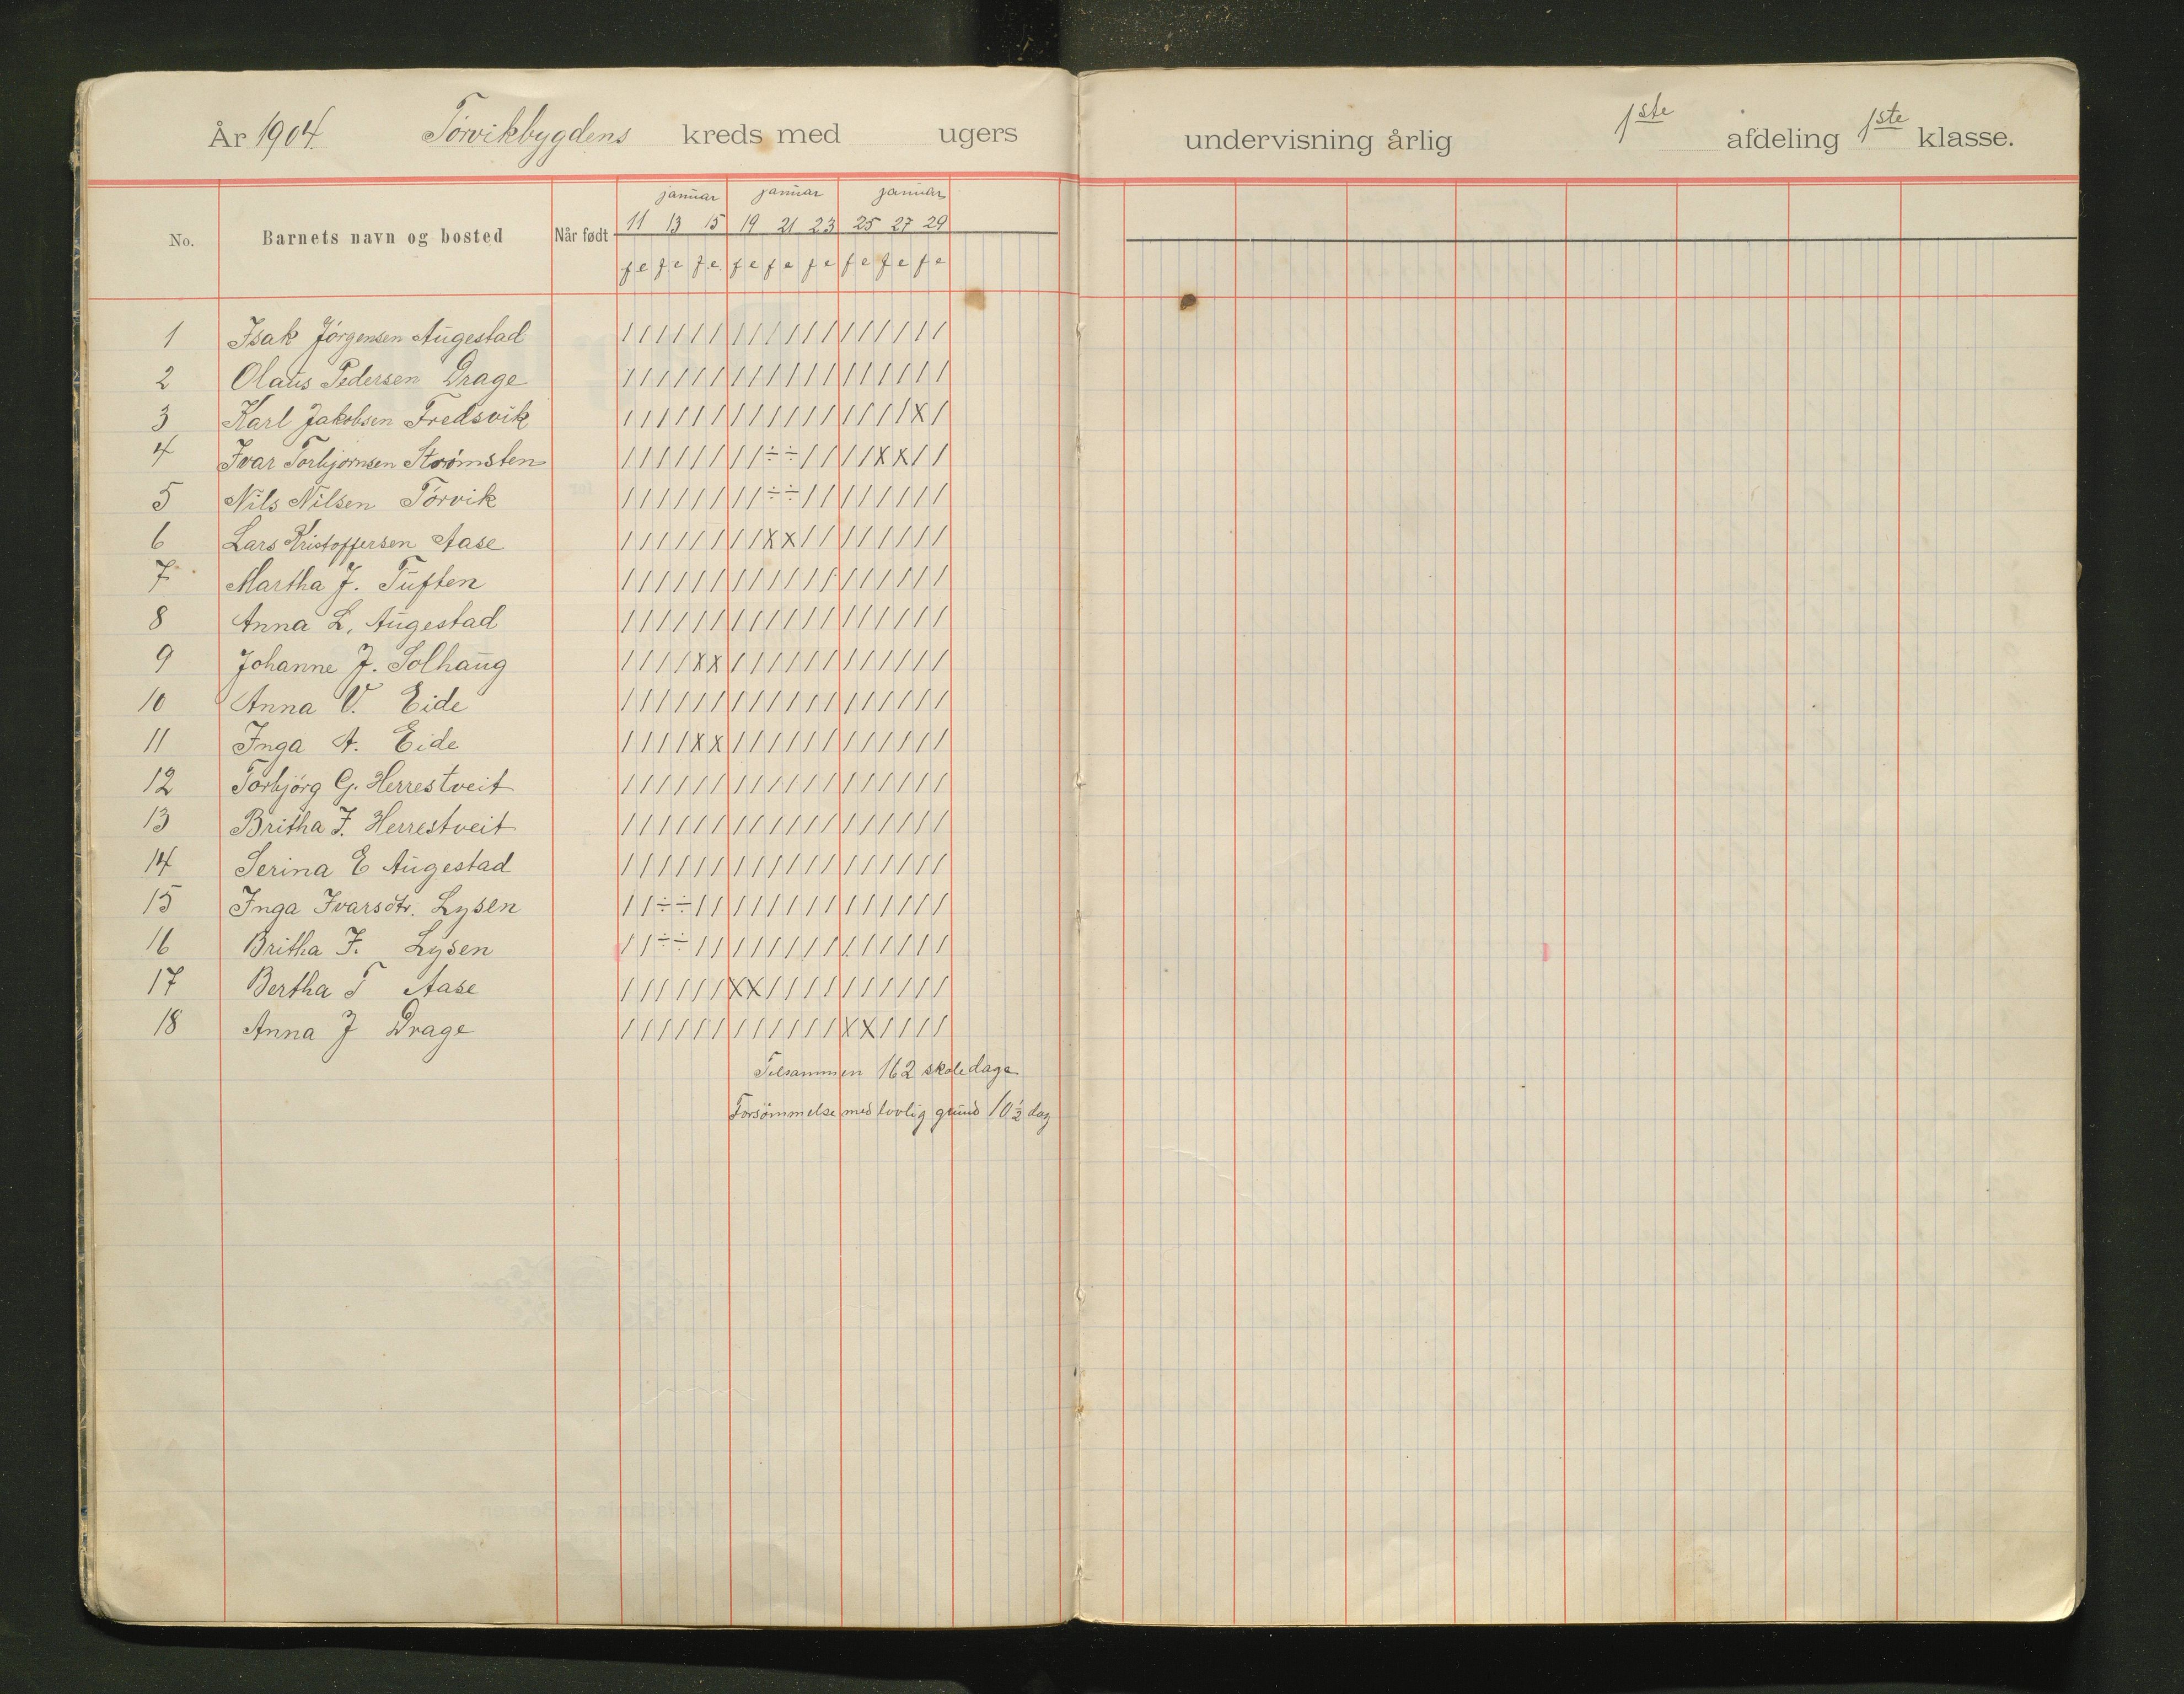 År 1904. Tórvikbygdens kreds med ugers undervisning årlig 1ste afdeling 1ste klasse.
No. Barnets navn og bosted Når født
januar januar januar
11 13 15 19 21 23 25 27 29
f e f e f e. f e f e f e f e f e f e
1 Isak Jörgensen Augestad / / / / / / / / / / / / / / / / / /
2 Olaus Pedersen Drage / / / / / / / / / / / / / / / / / /
3 Karl Jakobsen Fredsvik / / / / / / / / / / / / / / / / x /
4 Ivar Torbjørnsen Strömsten / / / / / / / / ÷ ÷ / / / / x x / /
5 Nils Nilsen Tórvik / / / / / / / / ÷ ÷ / / / / / / / /
6 Lars Kristoffersen Aase / / / / / / / / x x / / / / / / / /
7 Martha J. Tuften / / / / / / / / / / / / / / / / / /
8 Anna L. Augestad / / / / / / / / / / / / / / / / / /
9 Johanne J. Solhaug / / / / x x / / / / / / / / / / / /
10 Anna V. Eide / / / / / / / / / / / / / / / / / /
11 Inga A. Eide / / / / x x / / / / / / / / / / / /
12 Torbjörg G. Herrestveit / / / / / / / / / / / / / / / / / /
13 Britha J. Herrestveit / / / / / / / / / / / / / / / / / /
14 Serina E Augestad / / / / / / / / / / / / / / / / / /
15 Inga Ivarsdtr. Lysen / / ÷ ÷ / / / / / / / / / / / / / /
16 Britha J. Lysen / / ÷ ÷ / / / / / / / / / / / / / /
17 Bertha T Aase / / / / / / x x / / / / / / / / / /
18 Anna J Drage / / / / / / / / / / / / x x / / / /
Tilsammen 162 skoledage
Forsömmelse med lovlig grund 10 1/2 dag